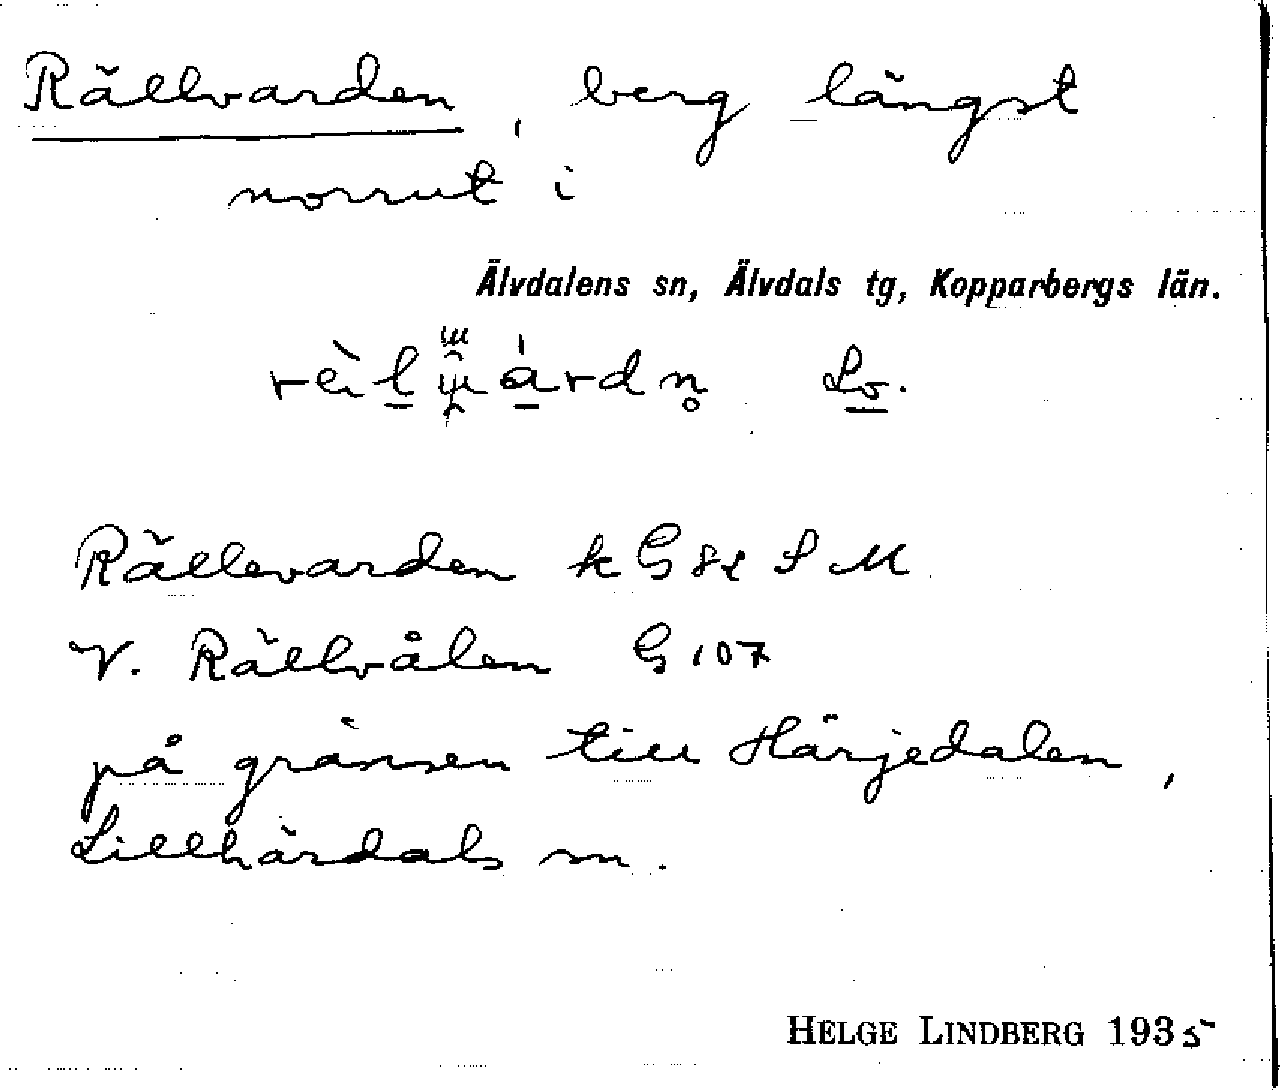 Rällvarden, berg längst
norrut i
Älvdalens sn, Älvdals tg, Kopparbergs län.
Lo.
Rällevarden k G 82 S M
V. Rällvålen G 107
på gränsen till Härjedalen,
Lillhärdals sn.
HELGE LINDBERG 1935